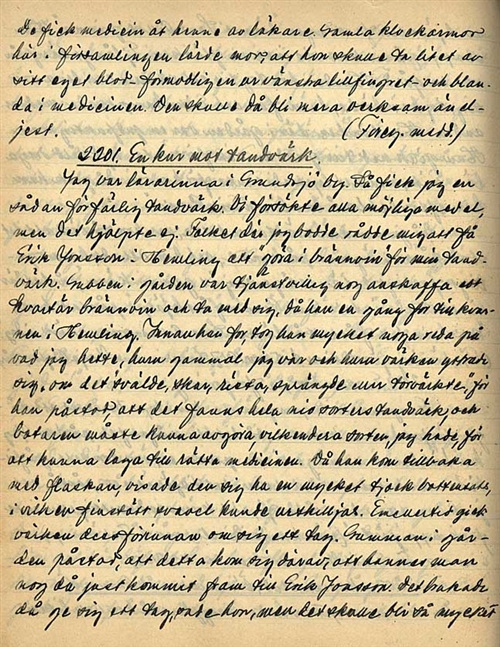 De fick medicin åt henne av läkare. Gamla klockarmor
här i församlingen lärde mor, att hon skulle ta litet av
sitt eget blod förmodligen ur vänstra lillfingret och blan-
da i medicinen. Den skulle då bli mera verksam än el-
jest. (Föreg. medd.)
2201. En kur mot tandvärk.
Jag var lärarinna i Grundsjö by. Så fick jag en
sådan förfärlig tandvärk. Vi försökte alla möjliga medel,
men det hjälpte ej. Folket där jag bodde rådde mig att få
Erik Jonsson i Hemling att "göra i brännvin" för min tand-
värk. Gubben i gården var tjänstvillig nog anskaffa ett
kvartär brännvin och ta med sig, då han en gång for till kvar-
nen i Hemling. Innan han for, tog han mycket noga reda på
vad jag hette, hur gammal jag var och hur värken yttrade
sig, om det "svälde, skar, ricta, sprängde eller törvärkte", för
han påstod, att det fanns hela nio sorters tandvärk, och
botaren måste kunna avgöra, vilkendera sorten, jag hade, för
att kunna laga till rätta medicinen. Då han kom tillbaka
med flaskan, visade den sig ha en mycket tjock bottensats,
i vilken finstött svavel kunde urskiljas. Emellertid gick
värken över förunnar om sig ett tag. Gumman i går-
den påstod, att detta kom sig därav, att hennes man
nog då just kommit fram till Erik Jonsson. Det brukade
då ge sig ett tag, sade hon, men det skulle bli så mycket